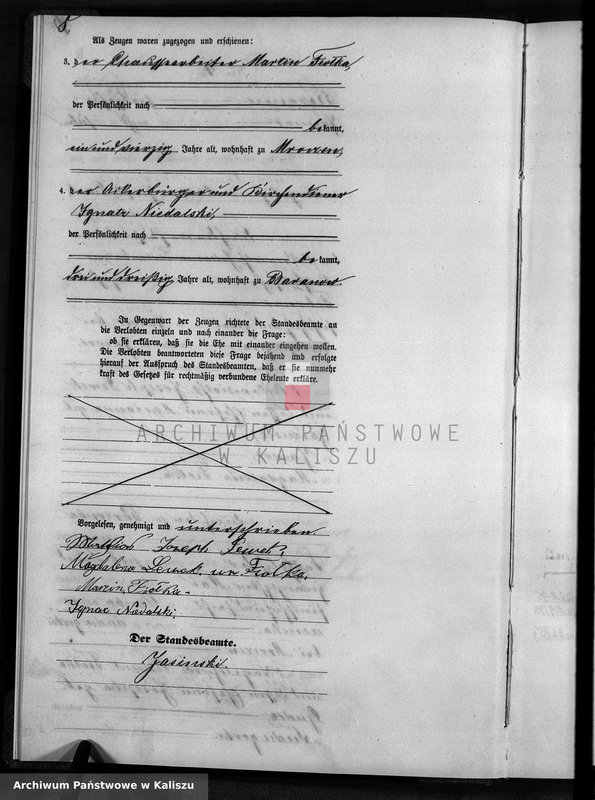 8
Als Zeugen waren zugezogen und erschienen:
3. der Chausseearbeiter Martin Fiołka,
der Persönlichkeit nach
bekannt,
einundvierzig Jahre alt, wohnhaft zu
4. der Ackerbürger und Kirchendiener
Ignatz Niedalski,
der Persönlichkeit nach
bekannt,
dreiunddreißig Jahre alt, wohnhaft zu Baranow.
In Gegenwart der Zeugen richtete der Standesbeamte an
die Verlobten einzeln und nach einander die Frage:
ob sie erklären, daß sie die Ehe mit einander eingehen wollen.
Die Verlobten beantworteten diese Frage bejahend und erfolgte
hierauf der Ausspruch des Standesbeamten, daß er sie nunmehr
kraft des Gesetzes für rechtmäßig verbundene Eheleute erkläre.
ARCHIWUM PAŃSTWOWE
W KALISZU
Vorgelesen, genehmigt und unterschrieben.
Joseph
Magdalena Fiołka.
Marcin Fiołka.
Ignac Nadalski;
Der Standesbeamte.
Jasinski.
Archiwum Państwowe w Kaliszu